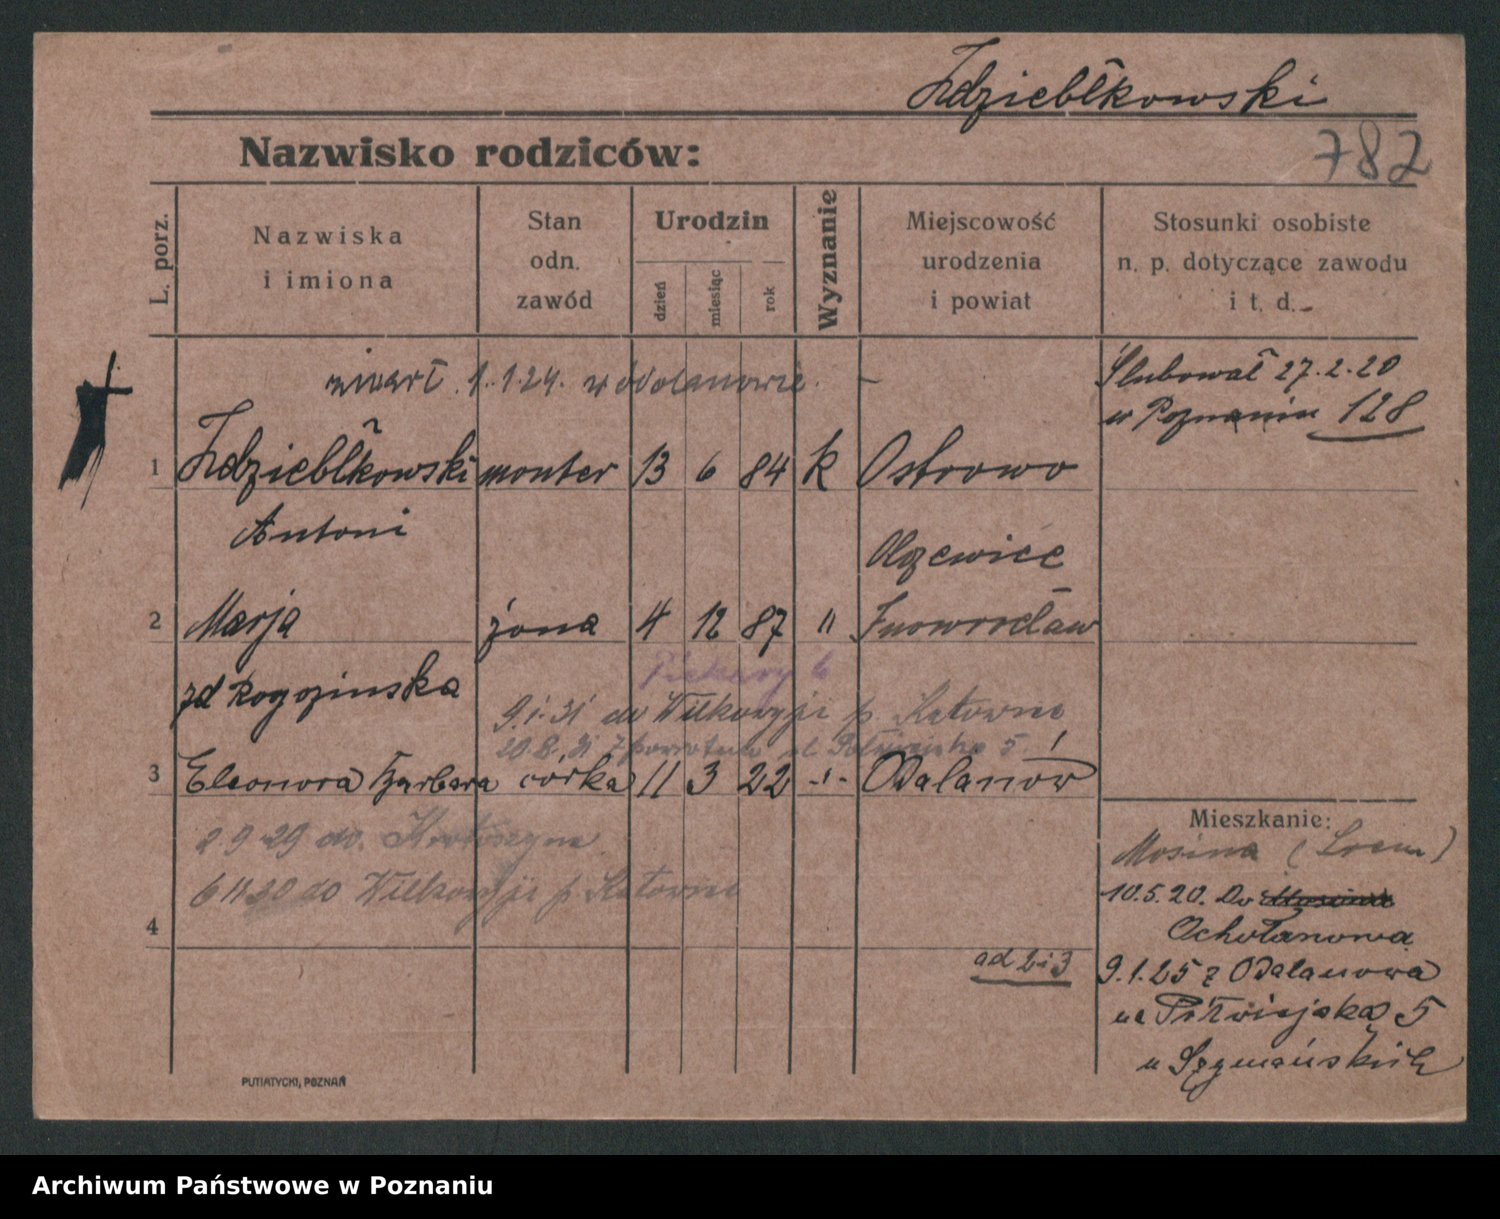 Zdziebłkowski
Nazwisko rodziców:
782
L. porz.
Nazwiska
i imiona
Stan
odn.
zawód
Urodzin
dzień
miesiąc
rok
Wyznanie
Miejscowość
urodzenia
i powiat
Stosunki osobiste
n. p. dotyczące zawodu
i t. d.
zmarł 1.1.24. w Odolanowie. –
Ślubował 27.2.20
w Poznaniu 128
1 Zdziebłkowski monter 13 6 84 k Ostrowo
Antoni
2 Marja żona 4 12 87 " Inowrocław
zd Rogozinska
Piekary 6
9.1.31 do Wilkowyji p. Katowne
20.8.31 z powrotem ul. Półwiejska 5
3 Eleonora Barbara córka 11 3 22 -"- Odalanów
2 9 29 do. Krotoszyna
6 11.30 do Wilkowyji p. Katowne
4
Mieszkanie:
Mosina (Śrem)
10.5.20. Do Mosina
Ochotanowa
ad 2 i 3
9.1.25 z Odalanowa
na Półwiejską 5
u Szymańskich
PUTIATYCKI, POZNAŃ
Archiwum Państwowe w Poznaniu